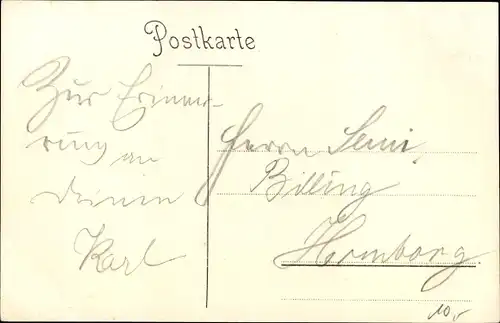 Postkarte
Zur Erinner-
rung an
Deinen
Karl
Herrn Semi
Billing
Homborg.
10,-